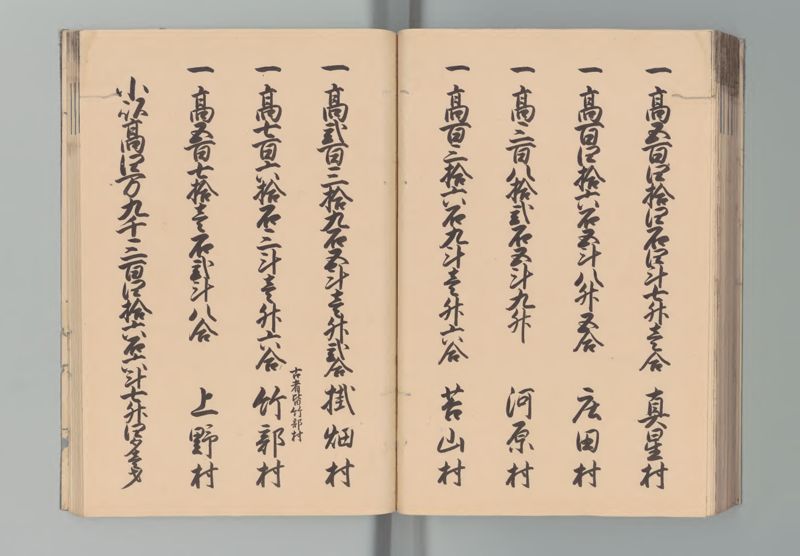 一 高五百四拾四石四斗七升壱合 真星村
一 高百四拾六石五斗八升五合 庄田村
一 高三百八拾弐石五斗九升 河原村
一 高百三拾六石九斗壱升六合 苔山村
一 高弐百三拾九石五斗壱升弐合 掛畑村
古者皆竹部村
一 高七百六拾石三斗壱升六合 竹部村
一 高五百七拾壱石弐斗八合 上野村
小以高四万九千三百四拾六石六斗七升